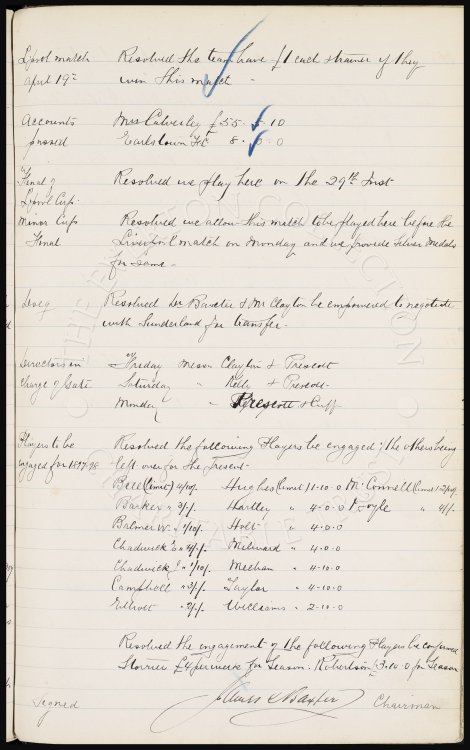 L'pool match Resolved the team have £1 each trainer if they
April 19th win this match -
Accounts Miss Calverley £55. 5. 10
passed Earlestown F.C. 8. 0. 0
Final of Resolved we play here on the 29th Inst
L'pool Cup.
Minor Cup Resolved we allow this match to be played here before the
Final Liverpool match on Monday and we provide Silver Medals
for same -
Resolved Dr Baxter & Mr Clayton be empowered to negotiate
with Sunderland for transfer.
Directors in Friday Messrs Clayton & Prescott
charge of Gate Saturday " Kelly & Prescott
Monday " Prescott & Cuff
Players to be Resolved the following Players be engaged; the others being
engaged for 1897-98 left over for the present -
Bell (limit) Hughes (limit) 1-10-0 McConnell (limit
Barker " Hartley " 4-0-0 Foyle "
Balmer W. " Holt " 4-0-0
Chadwick E " Milward " 4-0-0
Chadwick " Meehan " 4-10-0
Campbell " Taylor " 4-10-0
Elliott " Williams " 2-10-0
Resolved the engagement of the following Players be confirmed
Storrier £4 per week for Season. Robertson £3-10-0 for Season
Signed James C Baxter Chairman
THE EVERTON COLLECTION
CHARITABLE TRUST